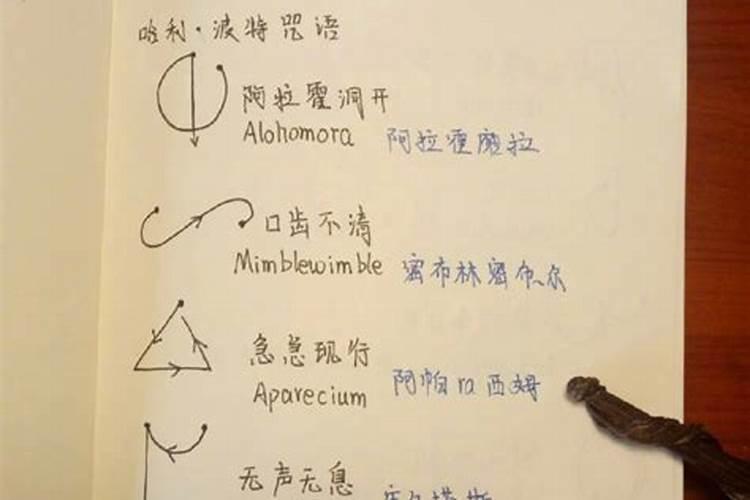 哈利·波特咒语
阿拉霍洞开
Alohomora 阿拉霍磨拉
口齿不清
Mimblewimble 密布林密布尔
急急现行
Aparecium 阿帕ra西姆
无声无息